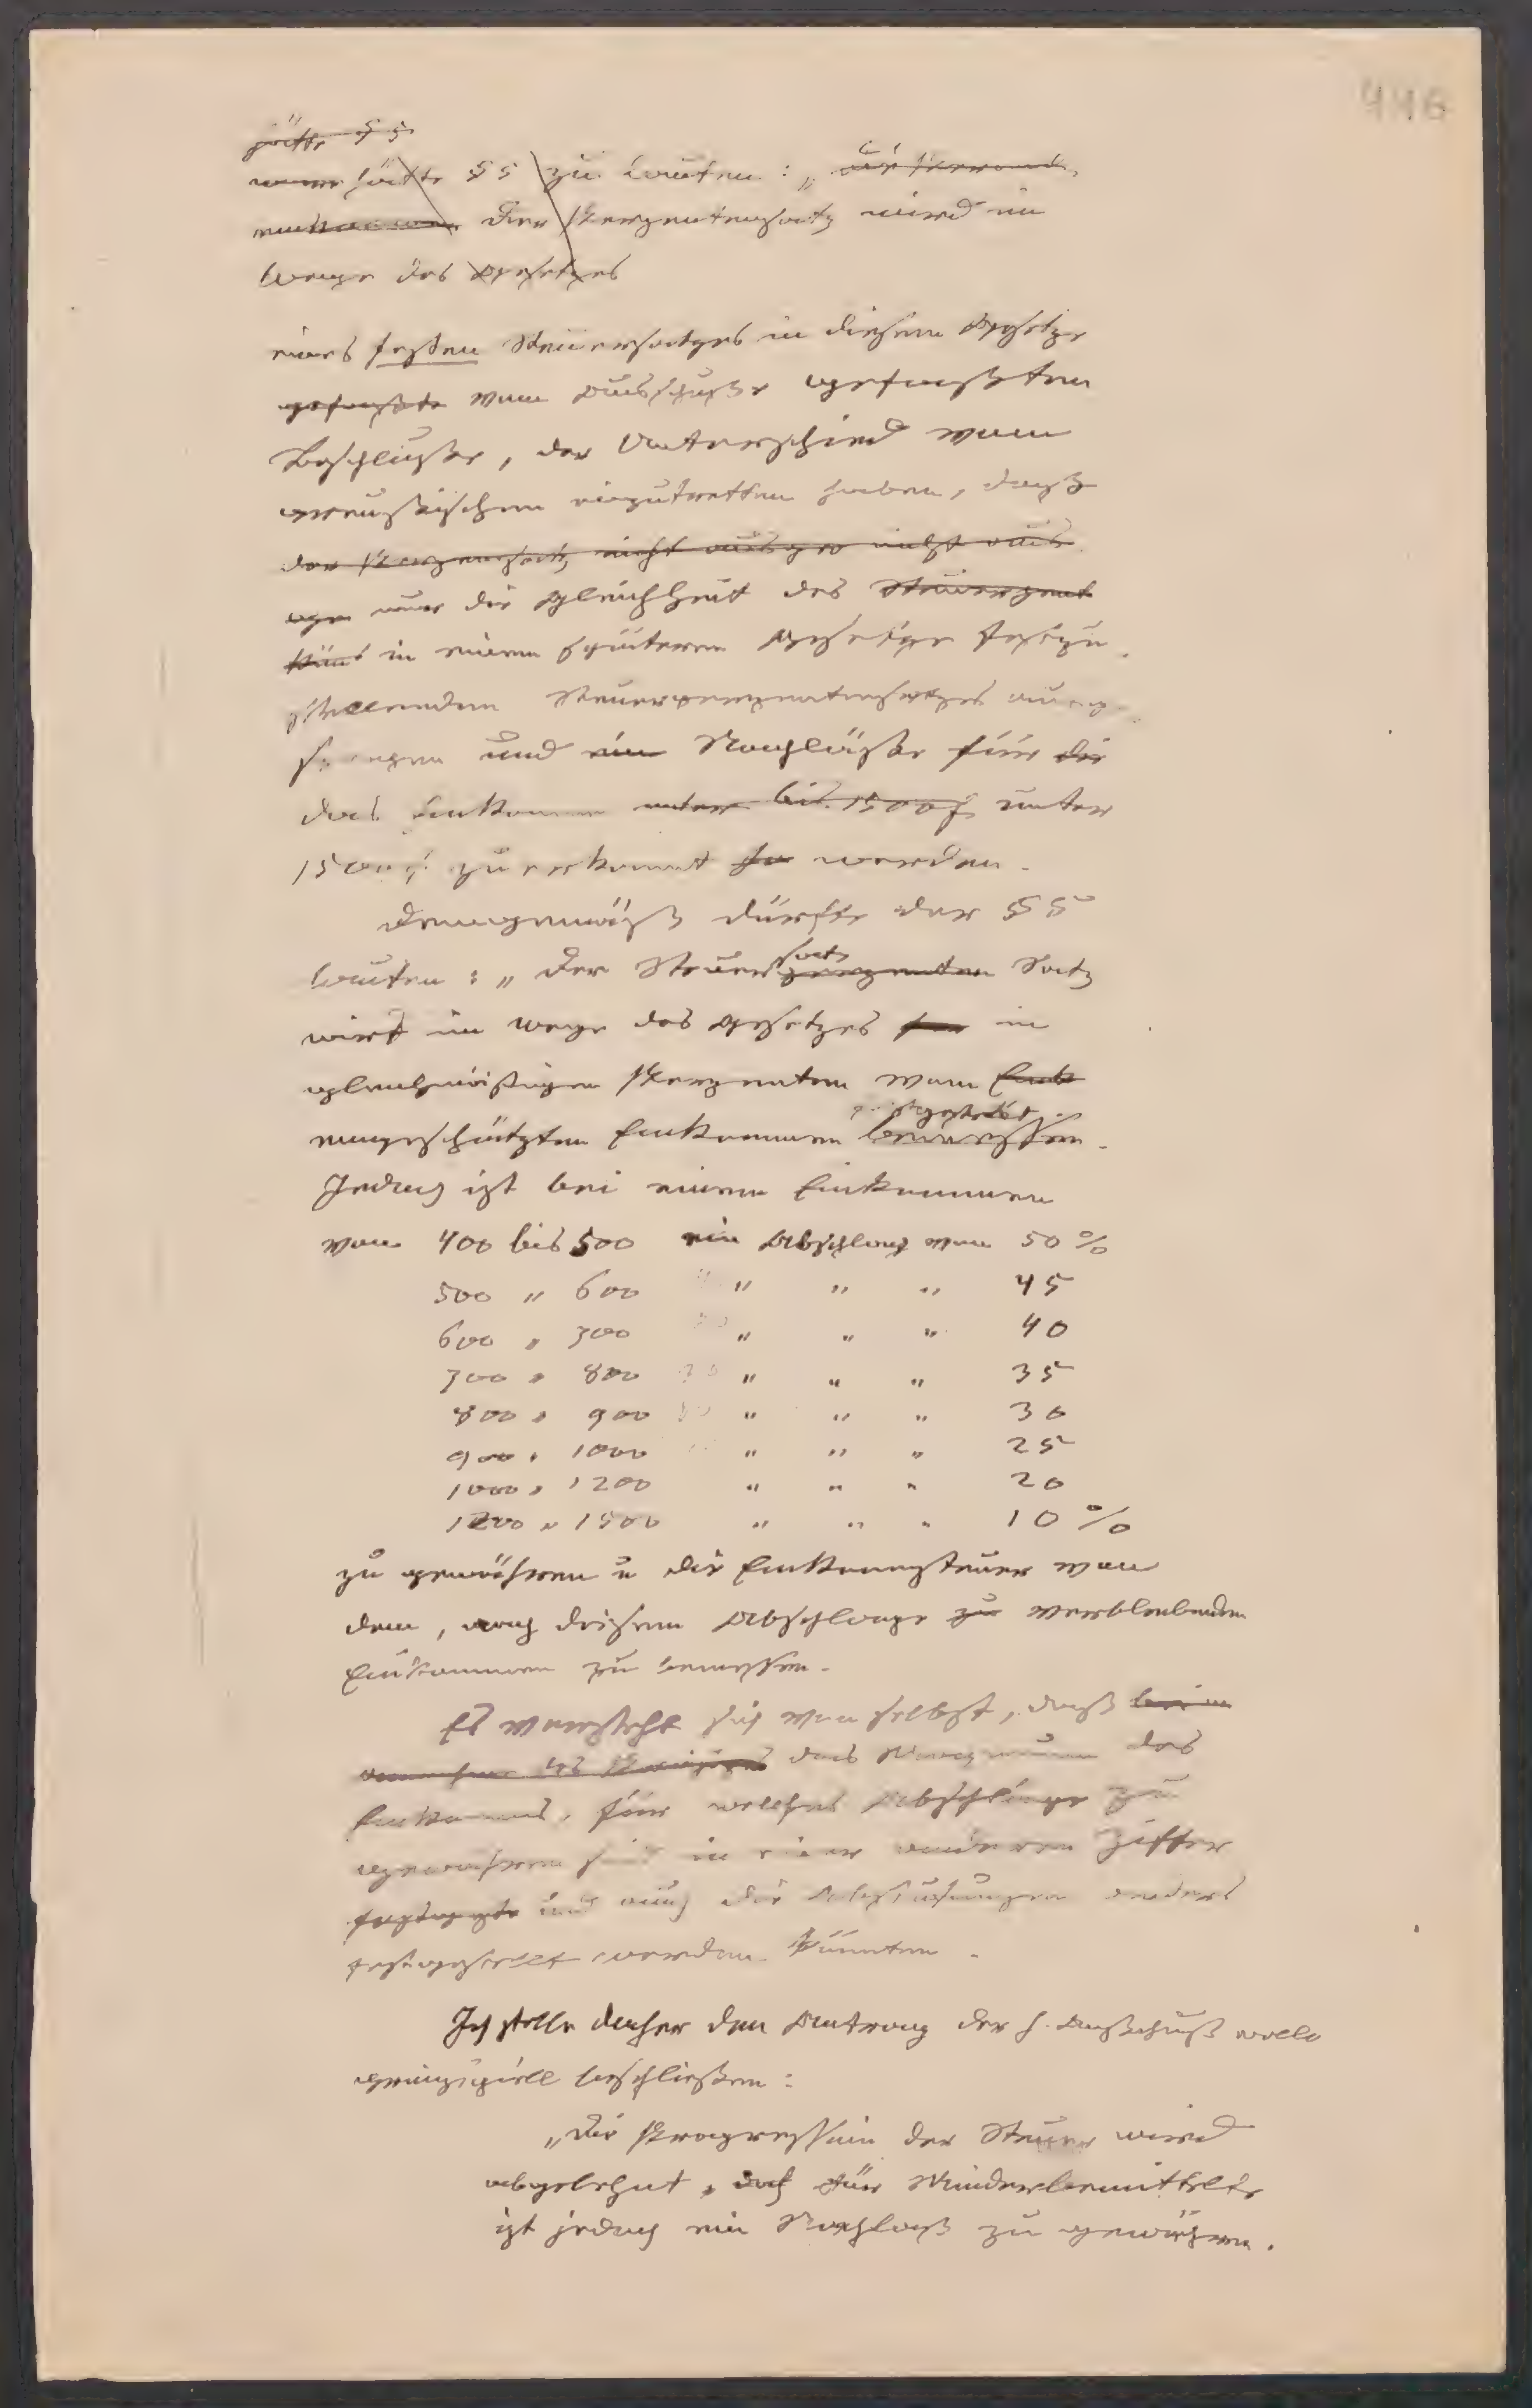 446
hätte § 5
hätte § 5 zu lauten : „ die Person
Der Perzentensatz wird im
Wege des Gesetzes
eines festen Steuersatzes in diesem Gesetze
gefaßte vom Ausschuße gefaßten
Beschluße, der Unterschied vom
preußischen einzutretten haben, daß
der Perzensatz nicht nicht aus
nur die Gleichheit des Steuerzent
in einem späteren Gesetze festzu
stellenden Steuerperzentensatzes
und ein Nachläße für die
das Einkommen unter bis 1500 f unter
1500 f zuerkannt werden.
Demgemäß dürfte der § 5
lauten : „ Der Steuer satz perzenten Satz
wird im Wege des Gesetzes in
gleichmäßigen Perzenten vom Eink
eingeschätzten Einkommen festgestellt bemessen.
Jedoch ist bei einem Einkommen
von 400 bis 500 ein Abschlag von 50 %
500 „ 600 „ „ „ 45
600 „ 700 „ „ „ 40
700 „ 800 „ „ „ 35
800 „ 900 „ „ „ 30
900 „ 1000 „ „ „ 25
1000 „ 1200 „ „ „ 20
1200 „ 1500 „ „ „ 10 %
zu gewähren u die Einkommsteuer von
dem, nach diesem Abschlage zu verbleibenden
Einkommen zu bemessen.
Es versteht sich von selbst, daß
das Maximum des
Einkommens, für welches Abschläge zu
gewähren sind in einer anderen Ziffer
und auch die Abstufungen anders
festgestellt werden könnten.
Ich stelle daher den Antrag der h. Ausschuß wolle
prinzipiell beschließen :
„Die Progression der Steuer wird
abgelehnt, für Minderbemittelte
ist jedoch ein Nachlaß zu gewähren.